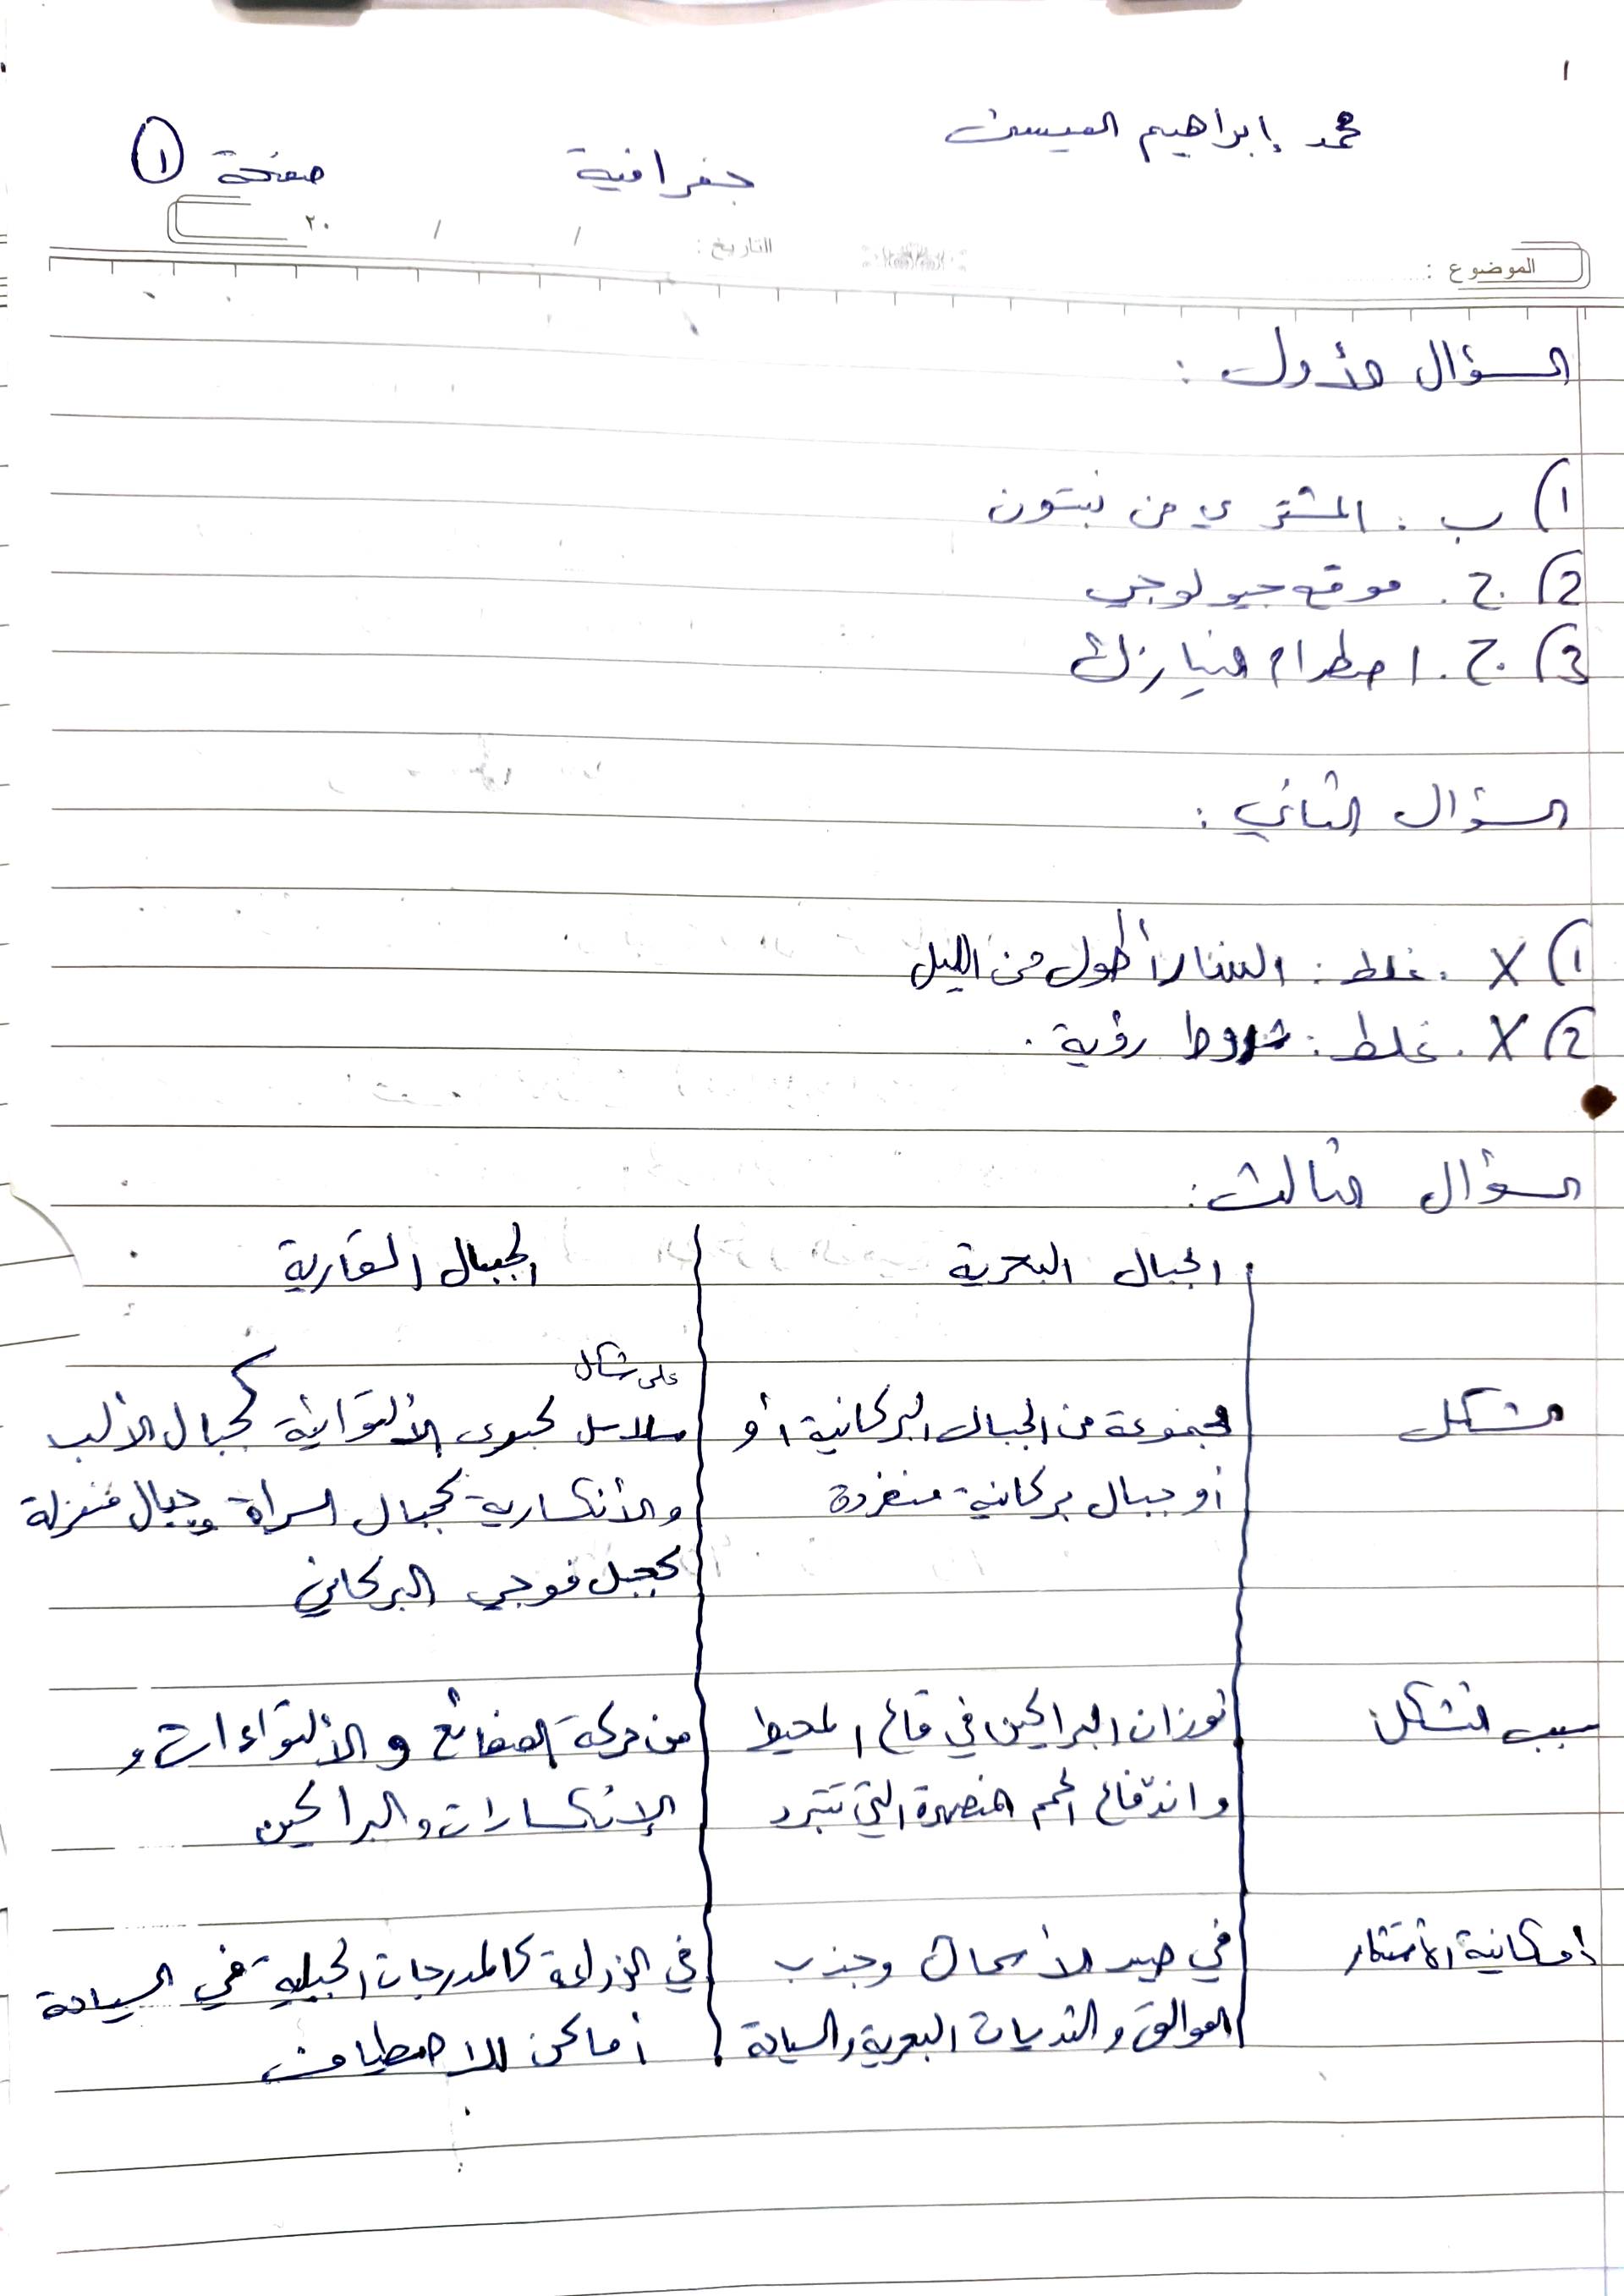 ١
محمد إبراهيم العيسى
جغرافية
صفحة ١
الموضوع :
التاريخ : / / ٢٠
السؤال الأول :
١) ب . المشتري من نبتون
2) ج . موقع جيولوجي
3) ج . اصطدام النيازك
السؤال الثاني :
١) X . غلط : النهار أطول من الليل
2) X . غلط : شروط رؤية .
السؤال الثالث :
الجبال البحرية | الجبال القارية
الشكل | مجموعة من الجبال البركانية أو | على شكل
أو جبال بركانية منفردة | سلاسل كبرى الألتوائية كجبال الألب
والأنكسارية كجبال السراة وجبال منعزلة
كجبل فوجي البركاني
سبب التشكل | ثوران البراكين في قاع المحيط | من حركة الصفائح و الألتواءات و
واندفاع الحمم المنصهرة التي تتبرد | الإنكسارات والبراكين
إمكانية الأستثمار | في صيد الأسماك وجذب | في الزراعة كالمدرجات الجبلية في السياحة
العوالق و الثدييات البحرية والسياحة | أماكن للاصطياف